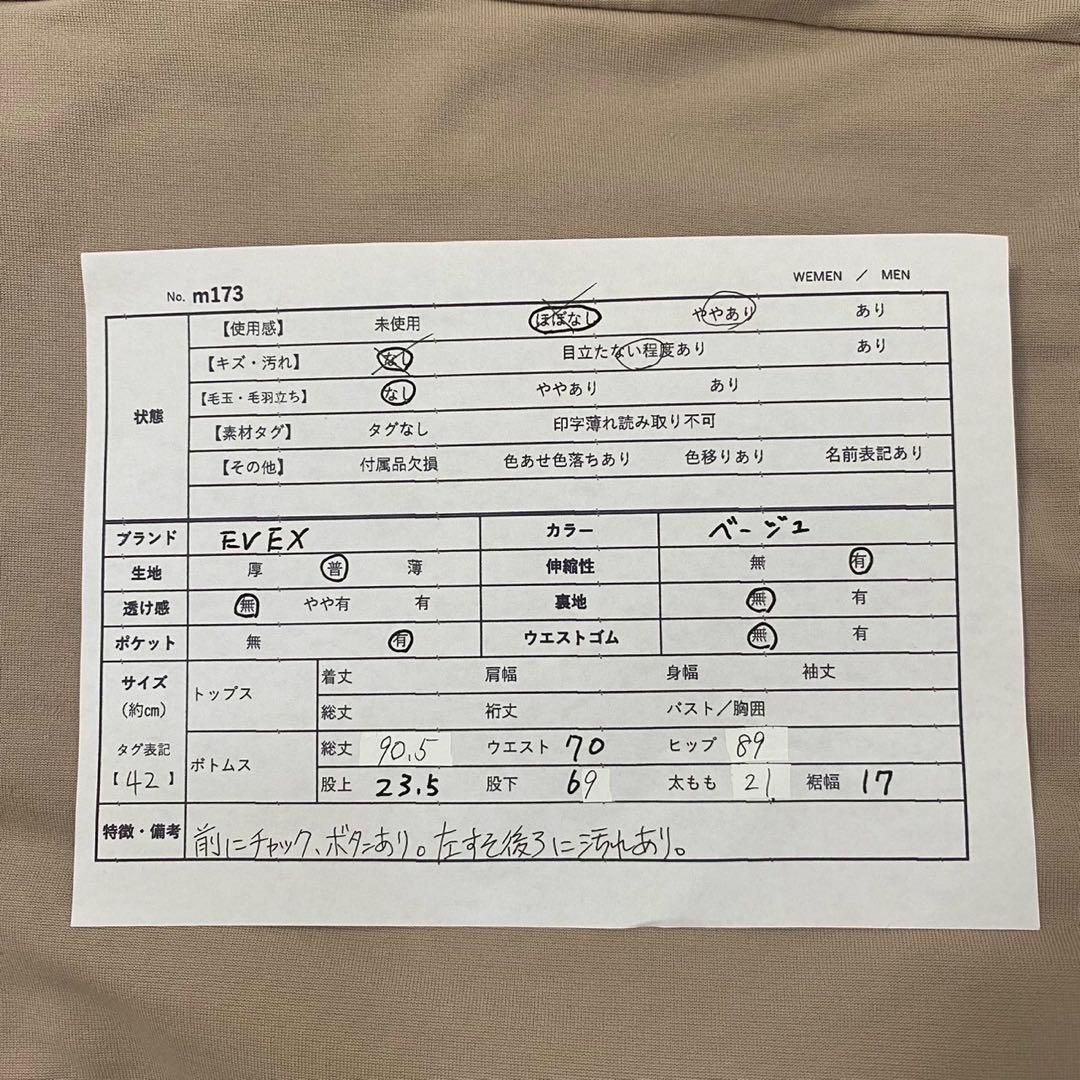 No. m173
WEMEN / MEN
状態
【使用感】 未使用 ほぼなし ややあり あり
【キズ・汚れ】 なし 目立たない程度あり あり
【毛玉・毛羽立ち】 なし ややあり あり
【素材タグ】 タグなし 印字薄れ読み取り不可
【その他】 付属品欠損 色あせ色落ちあり 色移りあり 名前表記あり
ブランド EVEX カラー ベージュ
生地 厚 普 薄 伸縮性 無 有
透け感 無 やや有 有 裏地 無 有
ポケット 無 有 ウエストゴム 無 有
サイズ
(約cm)
トップス
着丈 肩幅 身幅 袖丈
総丈 裄丈 バスト／胸囲
タグ表記
【42】
ボトムス
総丈 90.5 ウエスト 70 ヒップ 89
股上 23.5 股下 69 太もも 21 裾幅 17
特徴・備考 前にチャック、ボタンあり。左すそ後ろに汚れあり。